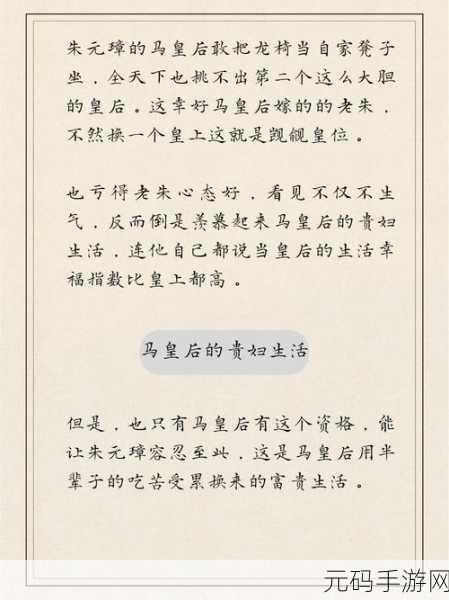 朱元璋的马皇后敢把龙椅当自家凳子
坐，全天下也挑不出第二个这么大胆
的皇后。这幸好马皇后嫁的的老朱，
不然换一个皇上这就是觊觎皇位。
也亏得老朱心态好，看见不仅不生
气，反而倒是羡慕起来马皇后的贵妇
生活，连他自己都说当皇后的生活幸
福指数比皇上都高。
马皇后的贵妇生活
但是，也只有马皇后有这个资格，能
让朱元璋容忍至此，这是马皇后用半
辈子的吃苦受累换来的富贵生活。
元码手游网